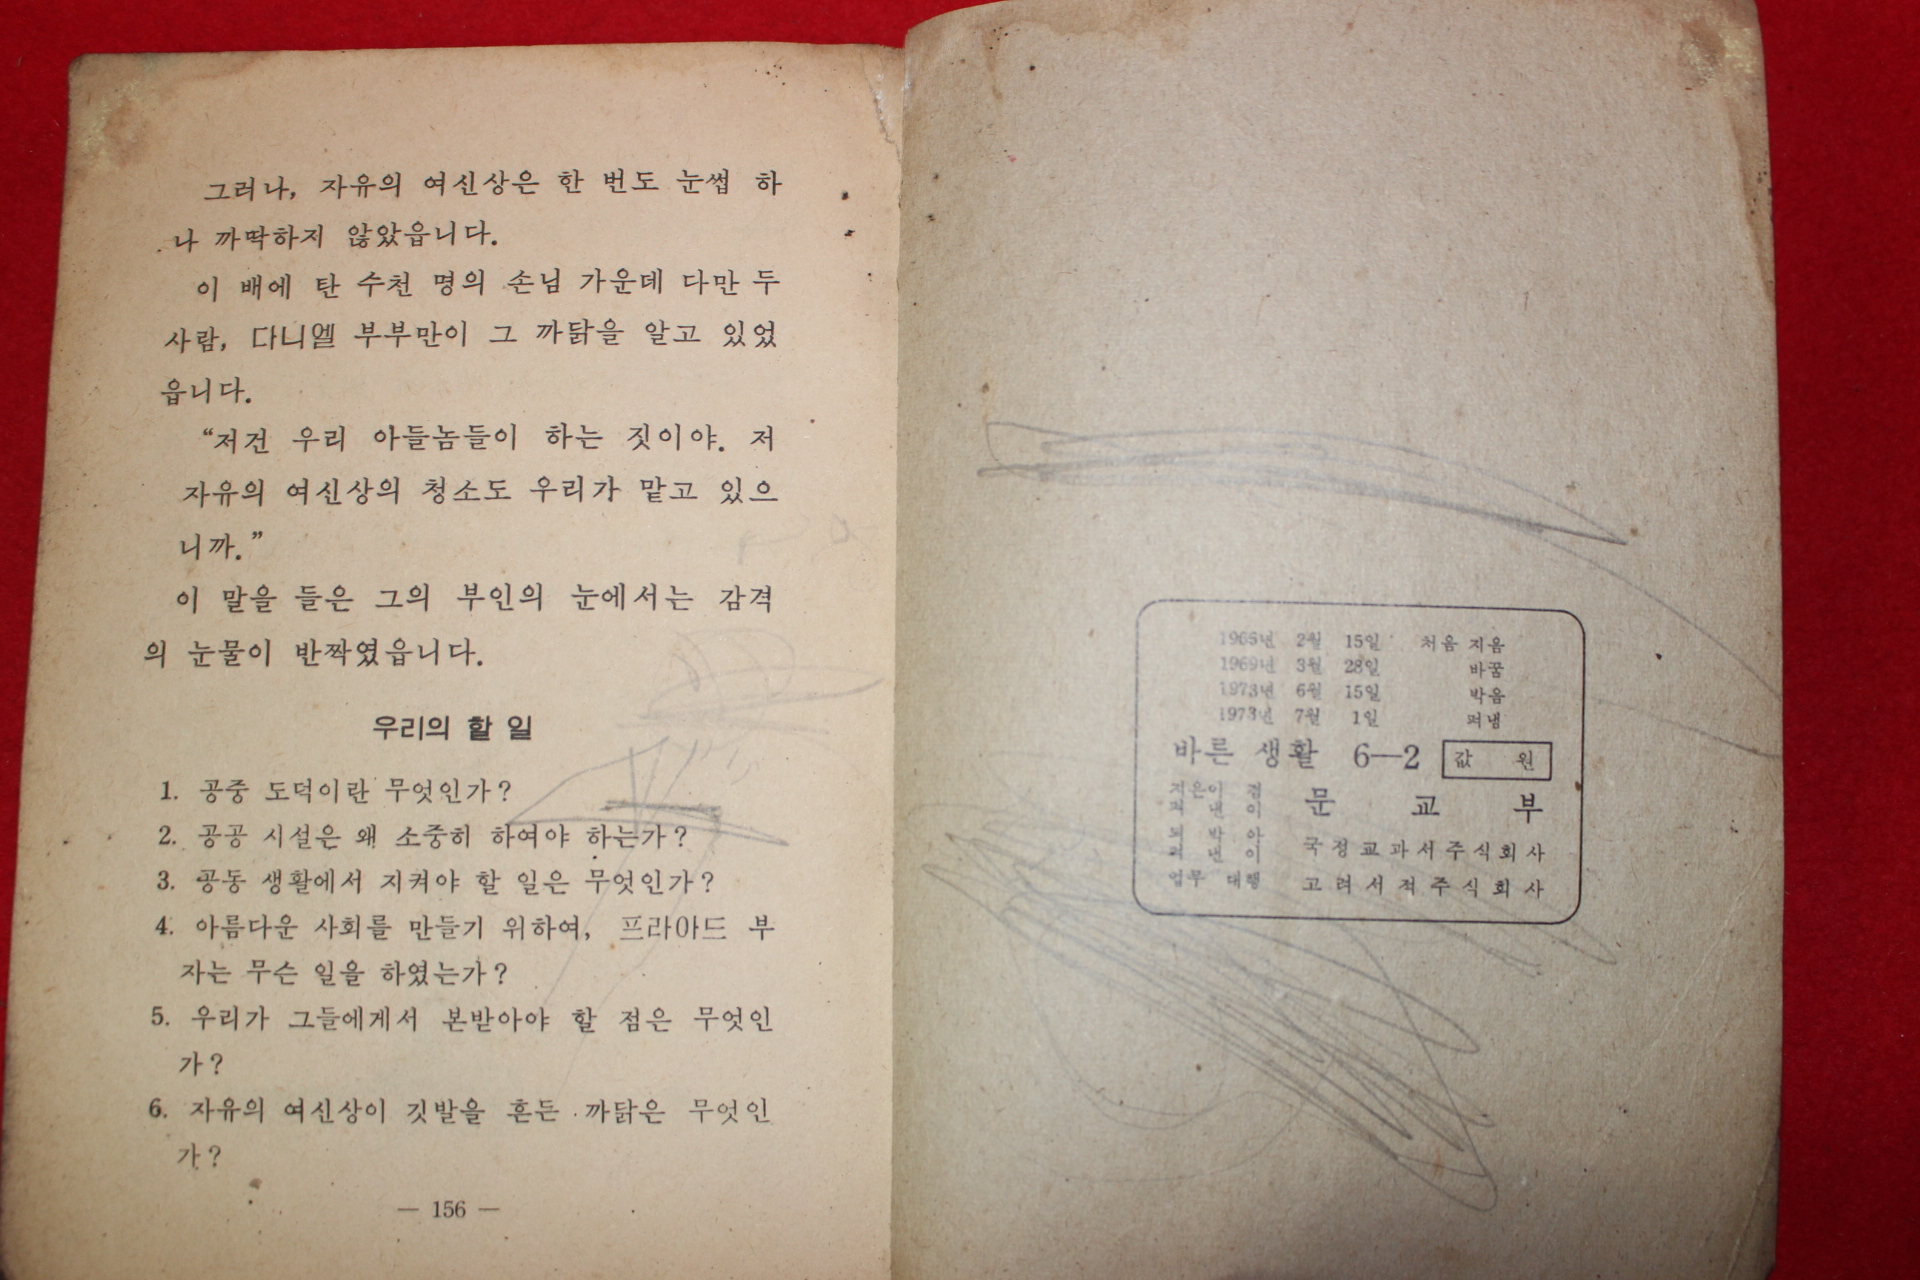 그러나, 자유의 여신상은 한 번도 눈썹 하
나 까딱하지 않았읍니다.
이 배에 탄 수천 명의 손님 가운데 다만 두
사람, 다니엘 부부만이 그 까닭을 알고 있었
읍니다.
“저건 우리 아들놈들이 하는 짓이야. 저
자유의 여신상의 청소도 우리가 맡고 있으
니까.”
이 말을 들은 그의 부인의 눈에서는 감격
의 눈물이 반짝였읍니다.
우리의 할 일
1. 공중 도덕이란 무엇인가?
2. 공공 시설은 왜 소중히 하여야 하는가?
3. 공동 생활에서 지켜야 할 일은 무엇인가?
4. 아름다운 사회를 만들기 위하여, 프라아드 부
자는 무슨 일을 하였는가?
5. 우리가 그들에게서 본받아야 할 점은 무엇인
가?
6. 자유의 여신상이 깃발을 흔든 까닭은 무엇인
가?
— 156 —
1965년 2월 15일 처음 지음
1969년 3월 28일 바꿈
1973년 6월 15일 박음
1973년 7월 1일 펴냄
바른 생활 6—2 값 원
지은이 겸
펴낸이 문교부
되박아
펴낸이 국정교과서주식회사
업무 대행 고려서적주식회사